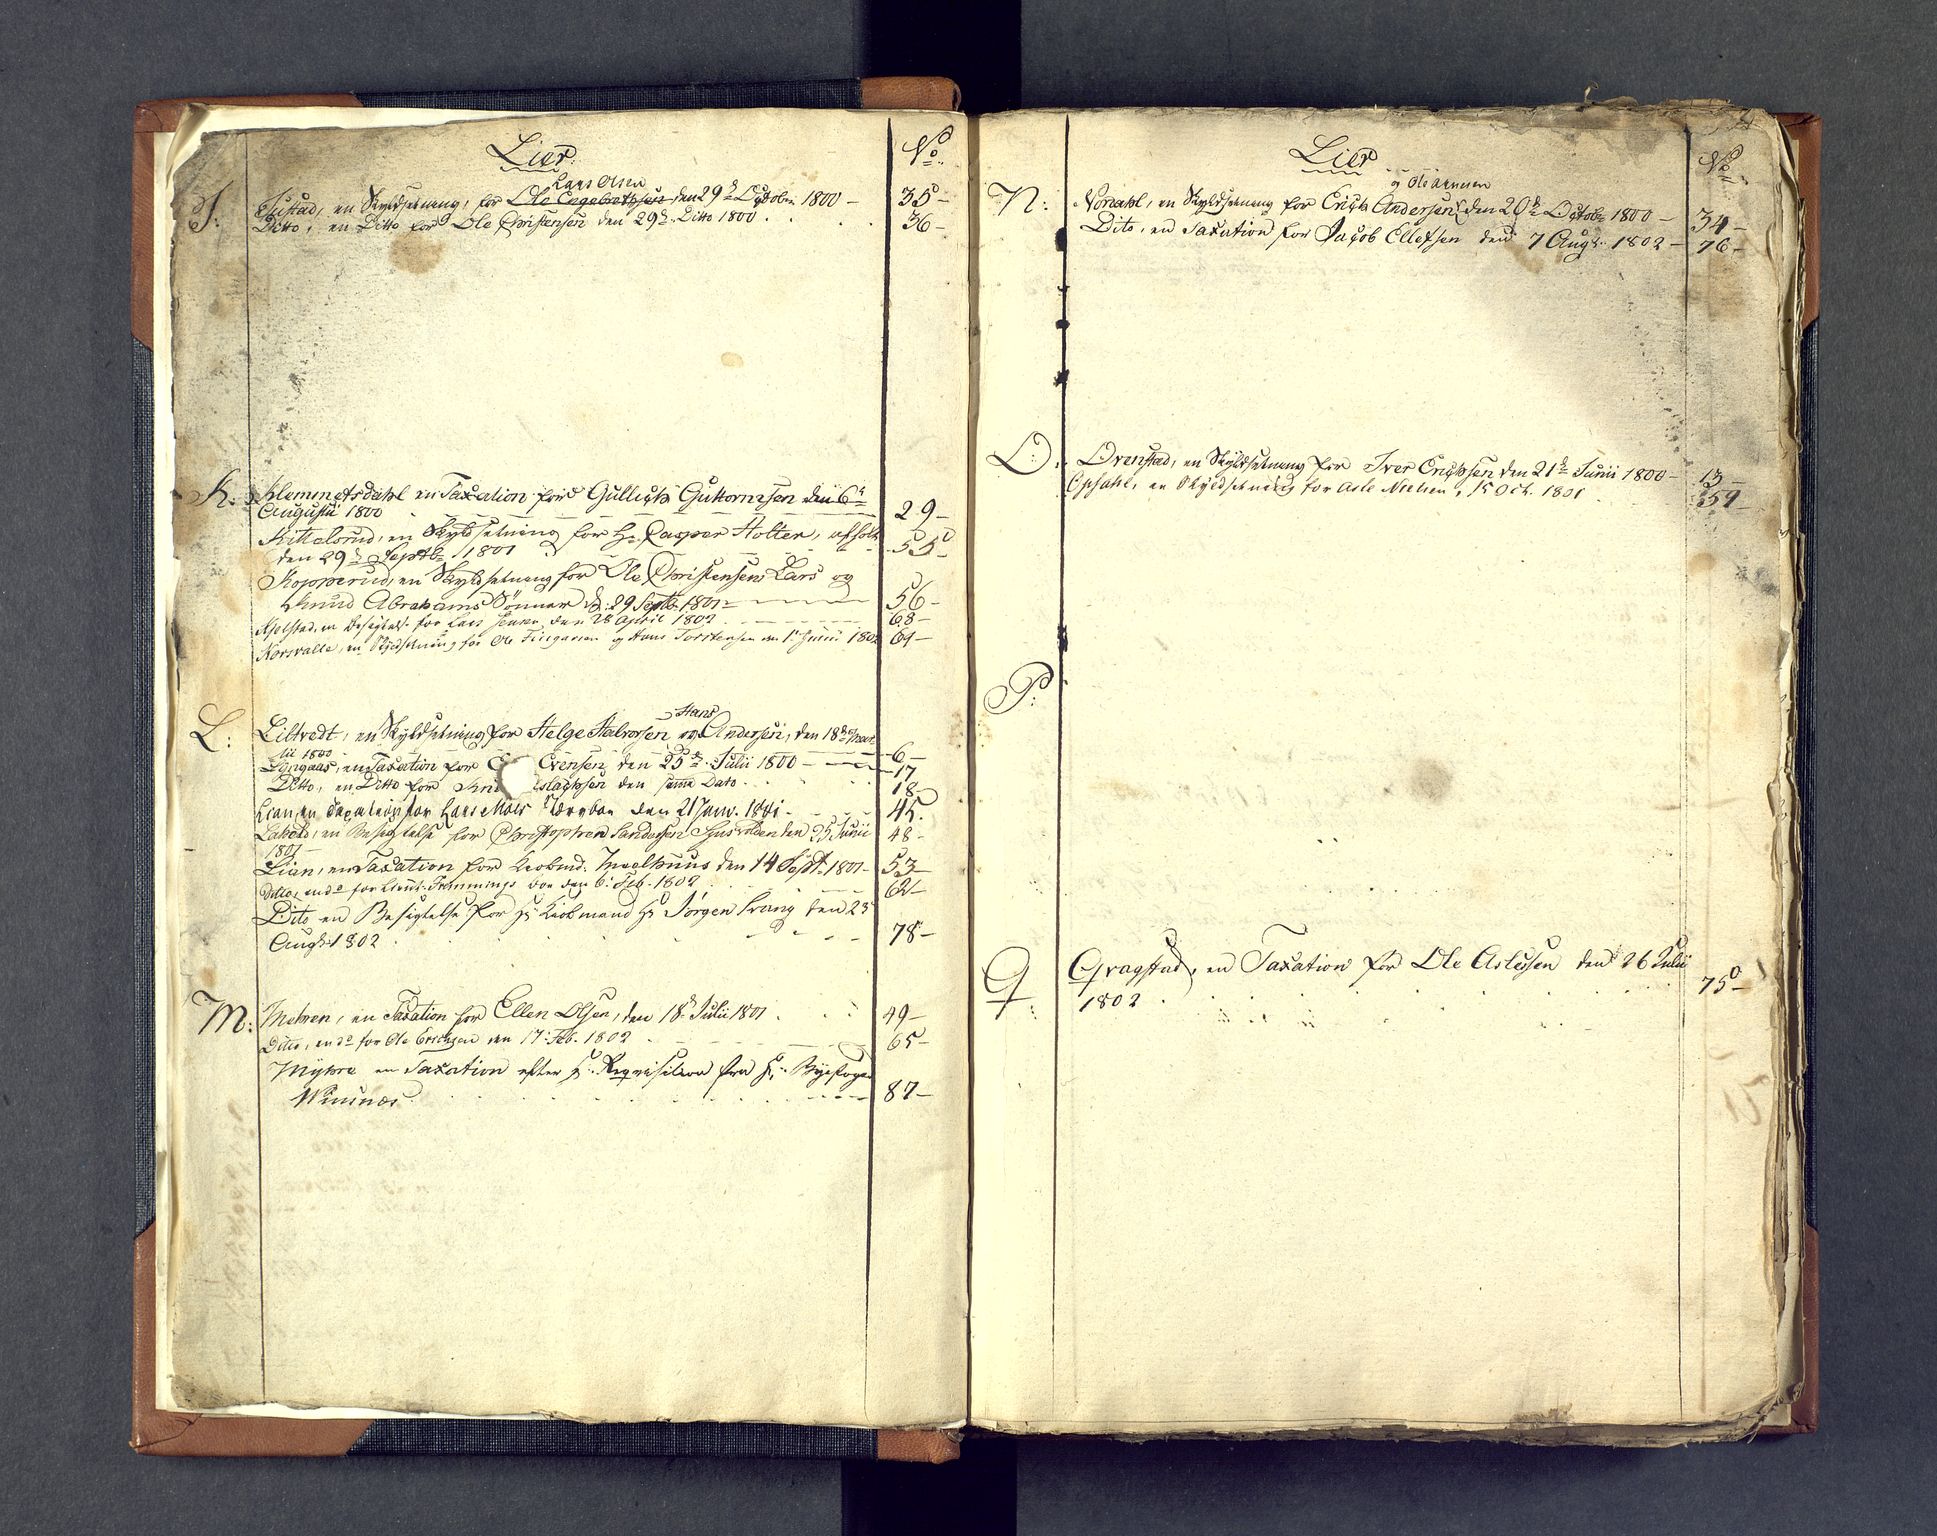 Lier.
No
Lars Olsen
I. Justad, en Skyldsetning, for Ole Engebrethsen, den 29de Octobr: 1800 — 35 —
Ditto, en Ditto for Ole Christensen den 29de Ditto 1800 . . . 36 —
K: Klemmetsdahl en Taxation for Gullich Guttormsen den 6te
Augusti 1800 — 29 —
Kittelsrud, en Skyldsetning for Hr Casper Holter, afholt
den 29de Septbr 1801 55
Kopperud, en Skyldsetning for Ole Christensen, Lars og
Knud Abrahams Sønner d: 29 Septb. 1801 — 56 —
Kjelstad, en Besigtels. for Lars Jensen, den 28 April 1802 — 68 —
Korsvalle, en Skyldsetning for Ole Fingarsen og Hans Torstensen den 1ste Junii 1802 61 —
Hans
L: Liltvedt, en Skyldsetning for Helge Halvorsen og Andersen, den 18de Mar
tii 1800 — 6 —
Lingaas, en Taxation for Evensen, den 25de Julii 1800 — 17
Ditto, en Ditto for den samme Dato . . 18
Lian, en Taxation for den 21 Janv. 1801. 45.
en Besigtelse for Christopher Sandersen den 25 Junii 48 —
1801 —
Lian, en Taxation for Kiøbmd. den 14 Sept. 1801 — 53 —
Ditto, en do for Lieut. den 6. Feb. 1802 62 —
Dito en Besigtelse for Hr Kiøbmand Hr Jørgen den 23
Augs: 1802 . . . 78 —
M: Metven, en Taxation for Ellen Olsen, den 18de Julii 1801 . . 49 —
Ditto, en do for Ole Erichsen den 17. Feb. 1802 — 65 —
Myhre en Taxation efter Requisition fra Hr. Byefoged
Winsnes . . . 87 —
Lier
No
og Ole Arnesen
N: Nordahl, en Skyldsetning for Erich Andersen, den 20de Octobr 1800 — 34 —
Dito, en Taxation for Jacob Ellefsen den 7 Augs. 1802 — 76 —
O: Ovenstad, en Skyldsetning for Iver Erichsen den 21de Junii 1800 — 13 —
Opsahl, en Skyldsetning for Asle Nielsen, 15 Oct. 1801 59 —
P:
Q: Qvagstad, en Taxation for Ole Aslessen den 26 Julii
1802 . . . 75 —